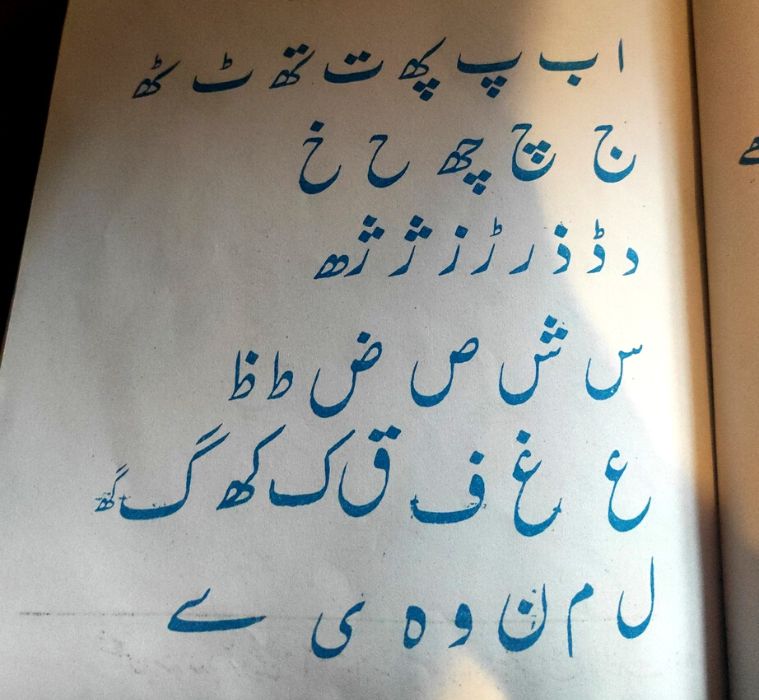 ا ب پ پھ ت تھ ٹ ٹھ
ج چ چھ ح خ
د ڈ ذ ر ڑ ز ژ ژھ
س ش ص ض ط ظ
ع غ ف ق ک کھ گ گھ
ل م ن و ہ ی ے